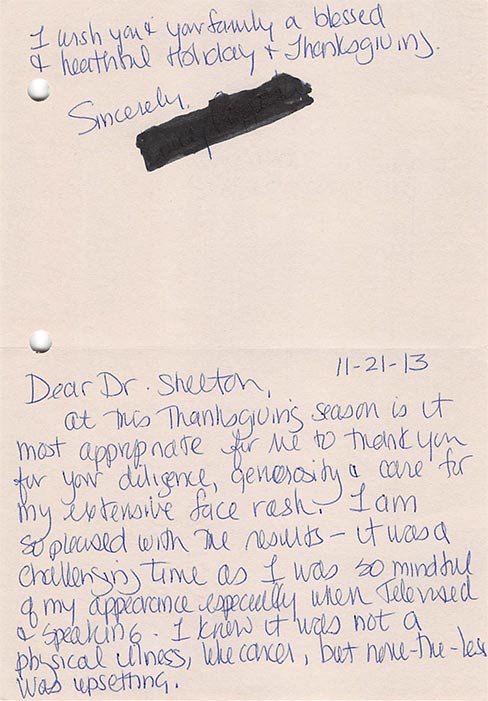 11-21-13
Dear Dr. Shelton,
at this Thanksgiving season is it
most appropriate for me to thank you
for your diligence, generosity & care for
my extensive face rash. I am
so pleased with the results - it was a
challenging time as I was so mindful
of my appearance especially when Televised
& speaking. I knew it was not a
physical illness, like cancer, but none-the-less
was upsetting.
I wish you & your family a blessed
& healthful Holiday & Thanksgiving.
Sincerely,